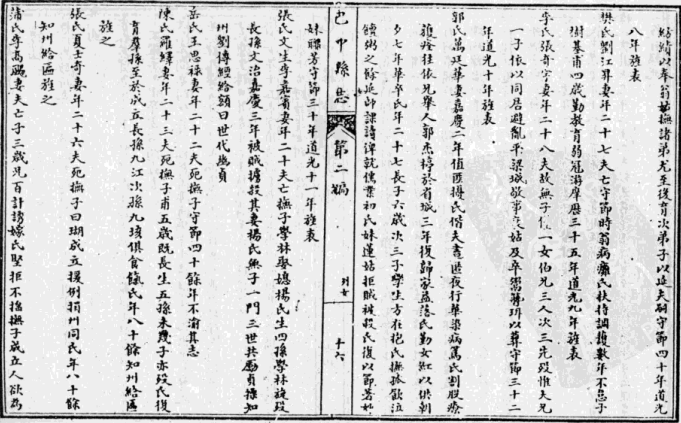 紡績以奉翁姑撫諸弟尤至復育次弟子以延夫嗣守節四十年道光
八年旌表
樊氏劉江昇妻年二十七夫亡守節時翁病癱氏扶持調護數年不怠子
樹基甫四歲勤教育弱冠游庠歷三十五年道光九年旌表
李氏張奇字妻年二十八夫故無子僅一女伯兄三人次三先歿惟夫兄
一子依以同居避亂平梁城敬事姑及卒鬻簪珥以葬守節三十二
年道光十年旌表
郭氏萬廷華妻嘉慶二年值匪擄氏偕夫晝匿夜行華染病篤氏割股療
旋痊往依兄舉人郭杰於省城三年復歸家益落氏勤女紅以供朝
夕七年華卒氏年二十七長子六歲次三子學生方在抱氏撫孤歠泣
饋粥之餘延師課讀俾就儒業初氏妹蓮姑拒賊被殺氏復以節著如
巴中縣志
第二編
列女
十六
妹聯芳守節三十年道光十一年旌表
張氏文生李嘉賓妻年二十夫亡撫子學林娶媳楊氏生四孫學林旋歿
長孫文治嘉慶三年被賊擄歿其妻楊氏無子一門三世共勵貞操知
州劉傳經給額曰世代幽貞
岳氏王思祿妻年二十二夫死撫子守節四十餘年不渝其志
陳氏羅繹妻年二十三夫死撫子甫五歲既長生五孫未幾子亦歿氏復
育羣孫至於成立長孫九江次孫九俱食餼氏年八十餘知州給匾
旌之
張氏夏士奇妻年二十六夫死撫子曰瑚成立援例捐州同氏年八十餘
知州給匾旌之
蒲氏李高騰妻夫亡子三歲兄百計誘嫁氏堅拒不搖撫子成立人欲為